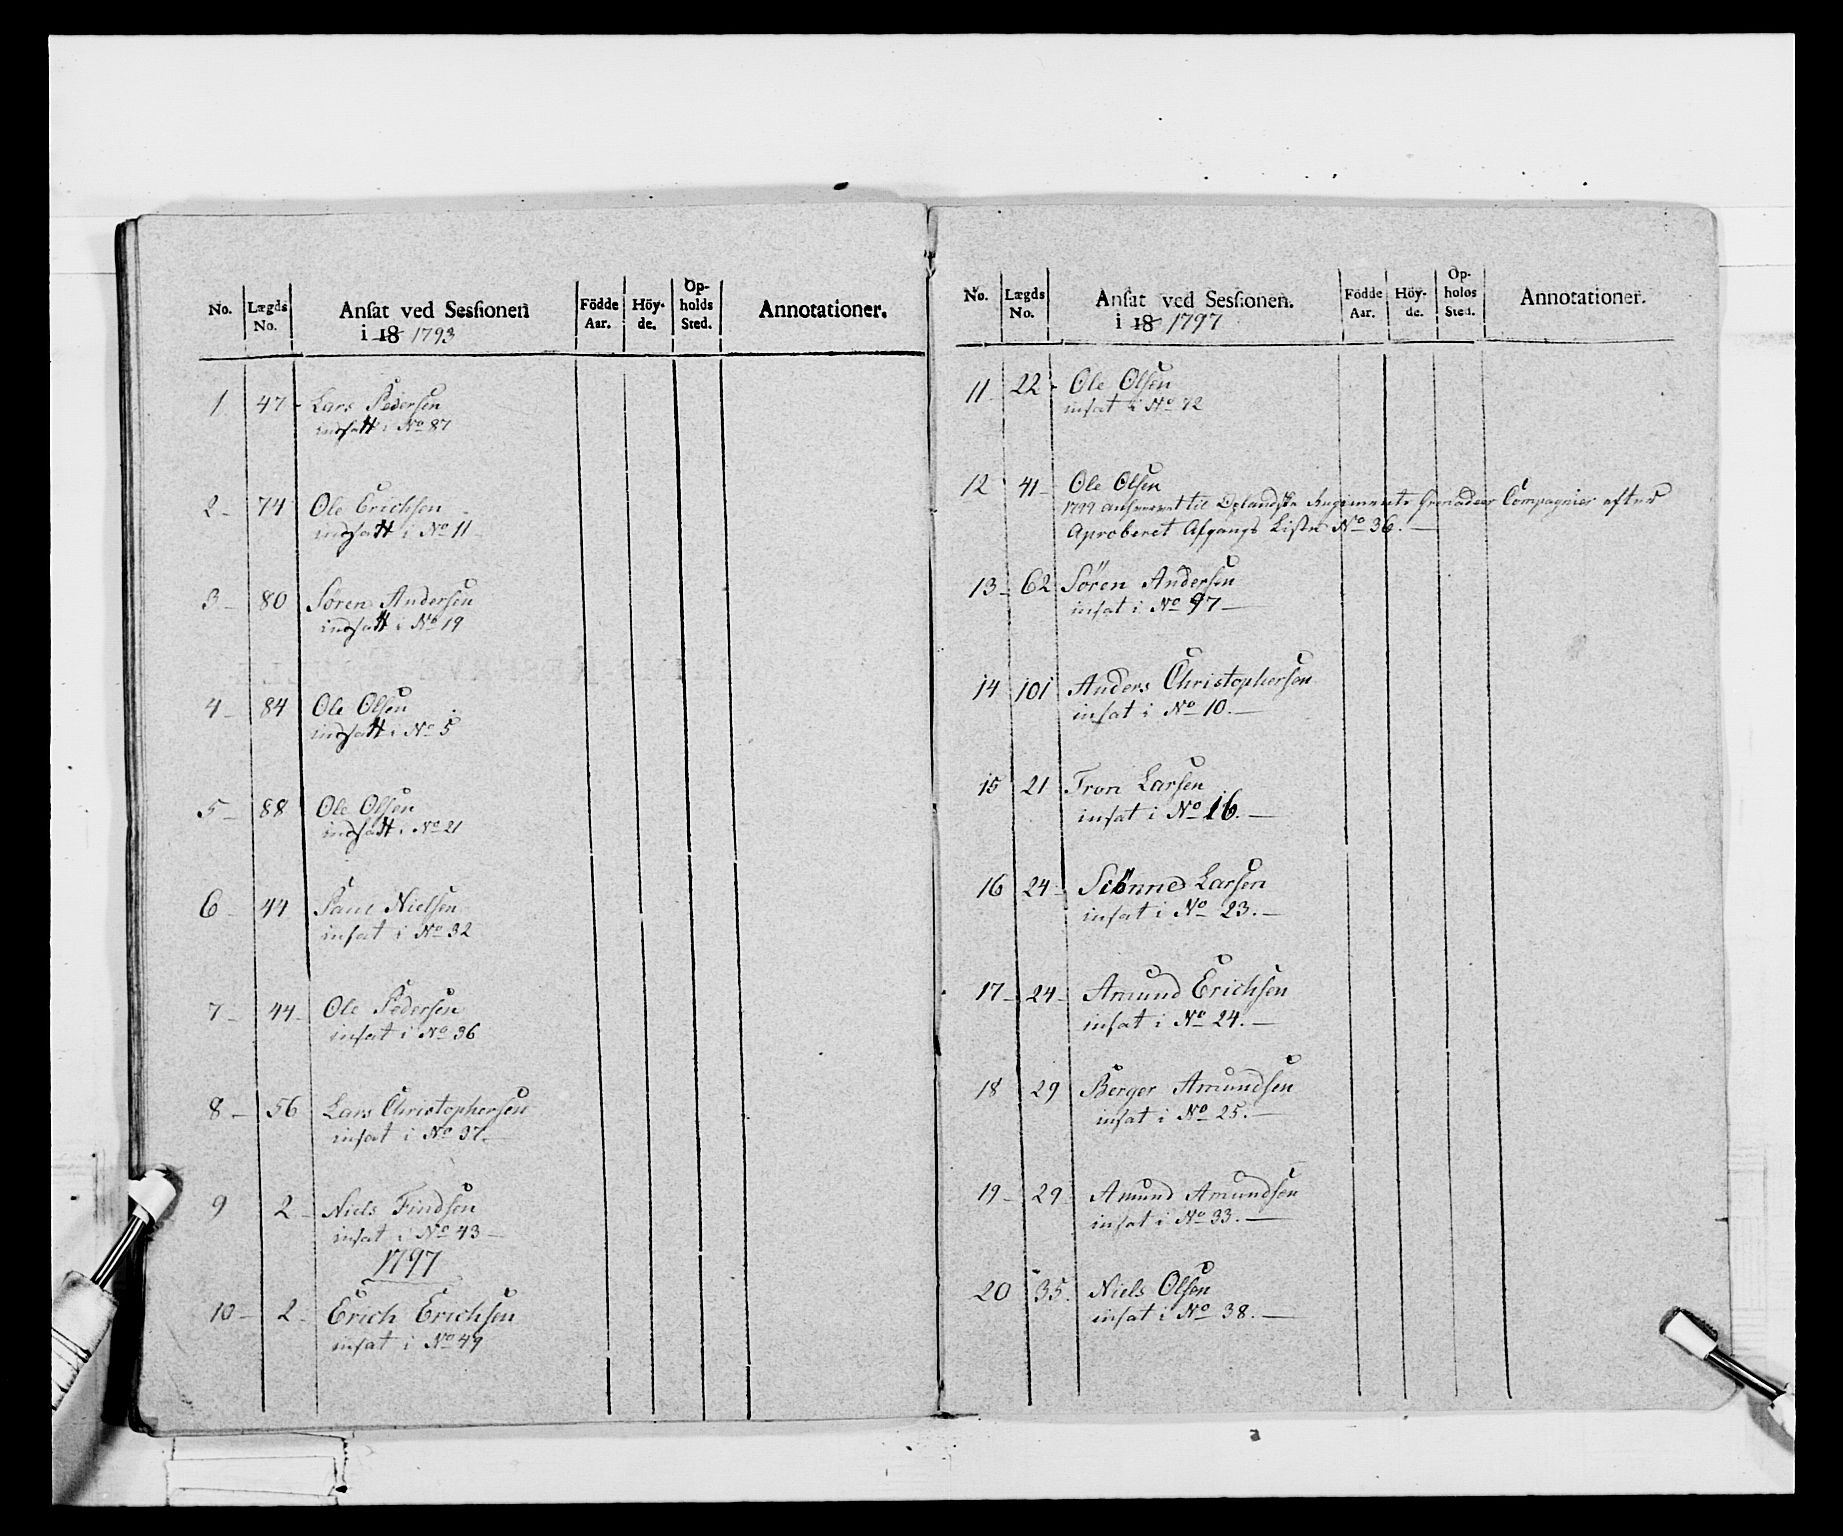 No. Lægds No. Ansat ved Sessionen i 18 1793 Födde Aar. Höy-de. Op-holds Sted. Annotationer.
1 47 - Lars Pedersen
indsatt i No 87
2 - 74 Ole Erichsen
indsatt i No 11
3 - 80 Sören Andersen
indsatt i No 19
4 - 84 Ole Olsen
indsatt i No 5
5 - 88 Ole Olsen
indsatt i No 21
6 - 44 Paul Nielsen
insat i No 32
7 - 44 - Ole Pedersen
insat i No 36
8 - 56 Lars Christophersen
insat i No 37. -
9 2 - Niels Findsen
insat i No 43 -
1797
10 - 2 - Erich Erichsen
insat i No 49
No. Lægds No. Ansat ved Sessionen. i 18 1797 Födde Aar. Höy-de. Op-holds Sted. Annotationer.
11 22 - Ole Olsen
insat i No 72
12 41 - Ole Olsen
1799 til Oplandske Regiments Grenadeer Compagnier efter
Aproberet Afgangs Liste No 36. -
13 - 62 Sören Andersen
insat i No 97 -
14 101 Anders Christophersen
insat i No 10. -
15 21 Tron Larsen
insat i No 16. -
16 24 - Siönne Larsen
insat i No 23. -
17 - 24 - Amund Erichsen
insat i No 24. -
18 29 Berger Amundsen
insat i No 25. -
19 - 29 Amund Amundsen
insat i No 33. -
20 35. Niels Olsen
insat i No 38. -